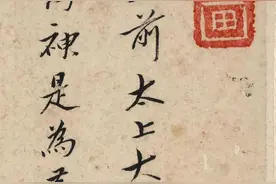 前太上大
神是為